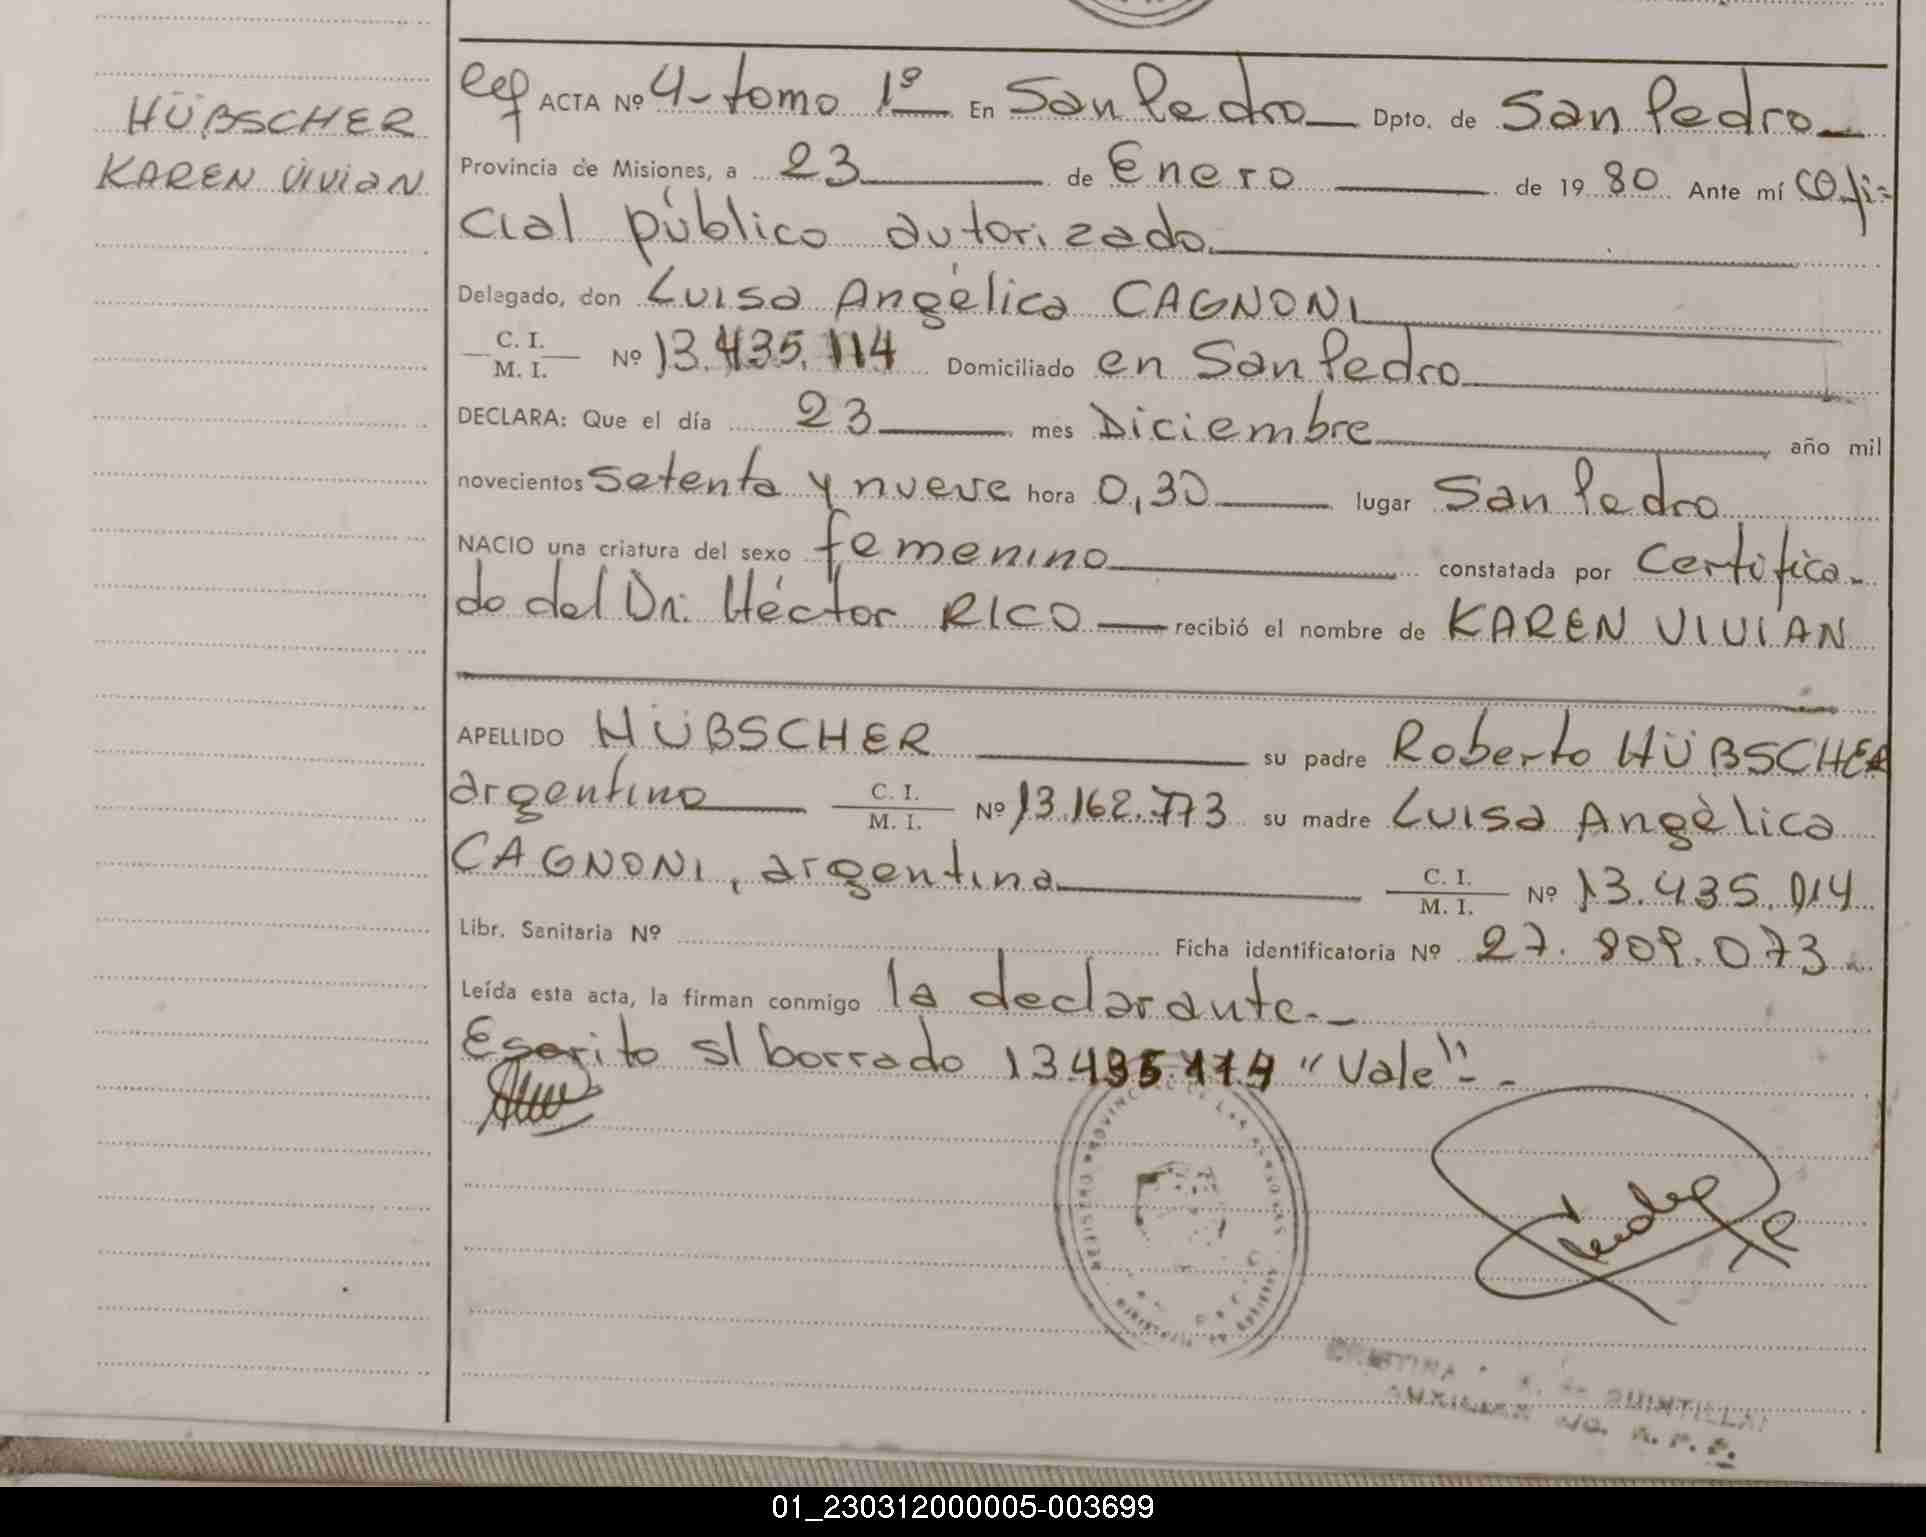 HÜBSCHER
KAREN VIVIAN
ACTA Nº 4-tomo 1º En San Pedro Dpto. de San Pedro
Provincia de Misiones, a 23 de Enero de 19 80 Ante mí Ofi=
cial público autorizado.
Delegado, don Luisa Angélica CAGNONI
C. I.
M. I. Nº 13.435.114 Domiciliado en San Pedro
DECLARA: Que el día 23 mes Diciembre año mil
novecientos setenta y nueve hora 0,30 lugar San Pedro
NACIO una criatura del sexo femenino constatada por Certifica-
do del Dr. Héctor RICO recibió el nombre de KAREN VIVIAN
APELLIDO HÜBSCHER su padre Roberto HÜBSCHER
argentino C. I. M. I. Nº 13.162.773 su madre Luisa Angélica
CAGNONI, argentina C. I. M. I. Nº 13.435.014
Libr. Sanitaria Nº Ficha identificatoria Nº 27.809.073
Leída esta acta, la firman conmigo la declarante.-
Escrito s/ borrado 13.435.114 "Vale"--
REGISTRO PROVINCIAL DE LAS PERSONAS
AUXILIAR
01_230312000005-003699